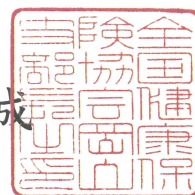 全国健康保
険協会岡山
支部長之印
成